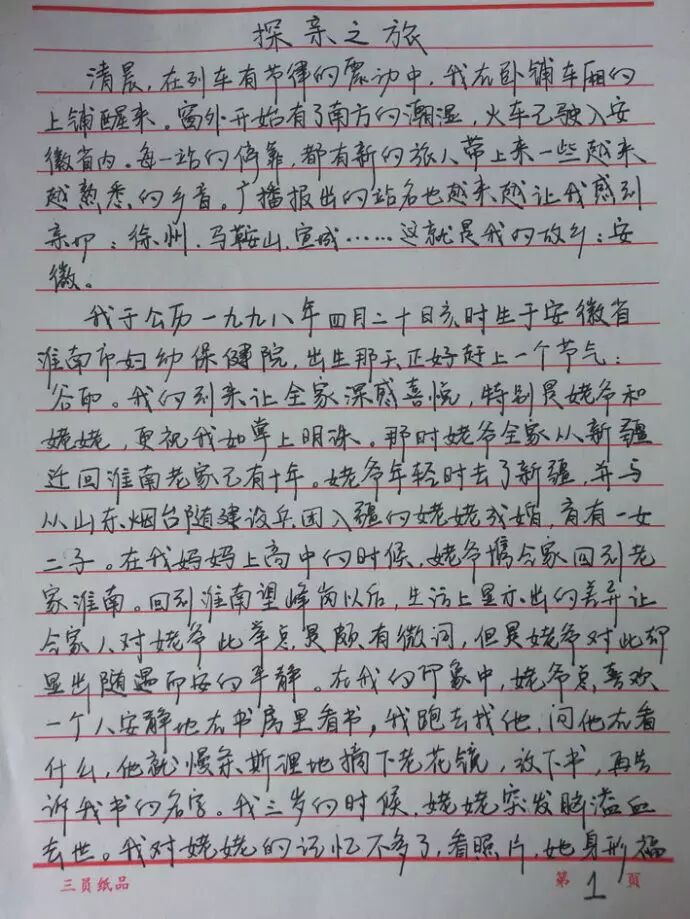 探亲之旅
清晨，在列车有节律的震动中，我在卧铺车厢的
上铺醒来。窗外开始有了南方的潮湿，火车已驶入安
徽省内。每一站的停靠，都有新的旅人带上来一些越来
越熟悉的乡音。广播报出的站名也越来越让我感到
亲切：徐州、马鞍山、宣城……这就是我的故乡：安
徽。
我于公历一九九八年四月二十日亥时生于安徽省
淮南市妇幼保健院，出生那天正好赶上一个节气：
谷雨。我的到来让全家深感喜悦，特别是姥爷和
姥姥，更视我如掌上明珠。那时姥爷全家从新疆
迁回淮南老家已有十年。姥爷年轻时去了新疆，并与
从山东烟台随建设兵团入疆的姥姥成婚，育有一女
二子。在我妈妈上高中的时候，姥爷携合家回到老
家淮南。回到淮南望峰岗以后，生活上显示出的差异让
合家人对姥爷此举总是颇有微词，但是姥爷对此却
显出随遇而安的平静。在我的印象中，姥爷总喜欢
一个人安静地在书房里看书，我跑去找他，问他在看
什么，他就慢条斯理地摘下老花镜，放下书，再告
诉我书的名字。我三岁的时候，姥姥突发脑溢血
去世。我对姥姥的记忆不多了，看照片，她身形福
三员纸品 第1页